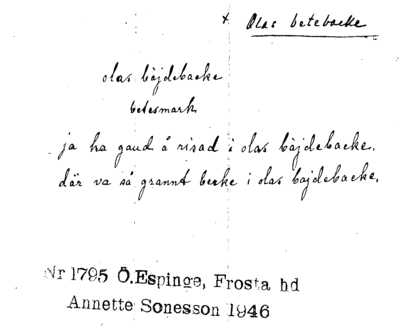 x Olas betebacke
olas bàjdebacke
betesmark
ja ha gaud å risad i olas bàjdebacke.
där va så grannt becke i olas bajdebacke.
Nr 1795 Ö.Espinge, Frosta hd
Annette Sonesson 1946